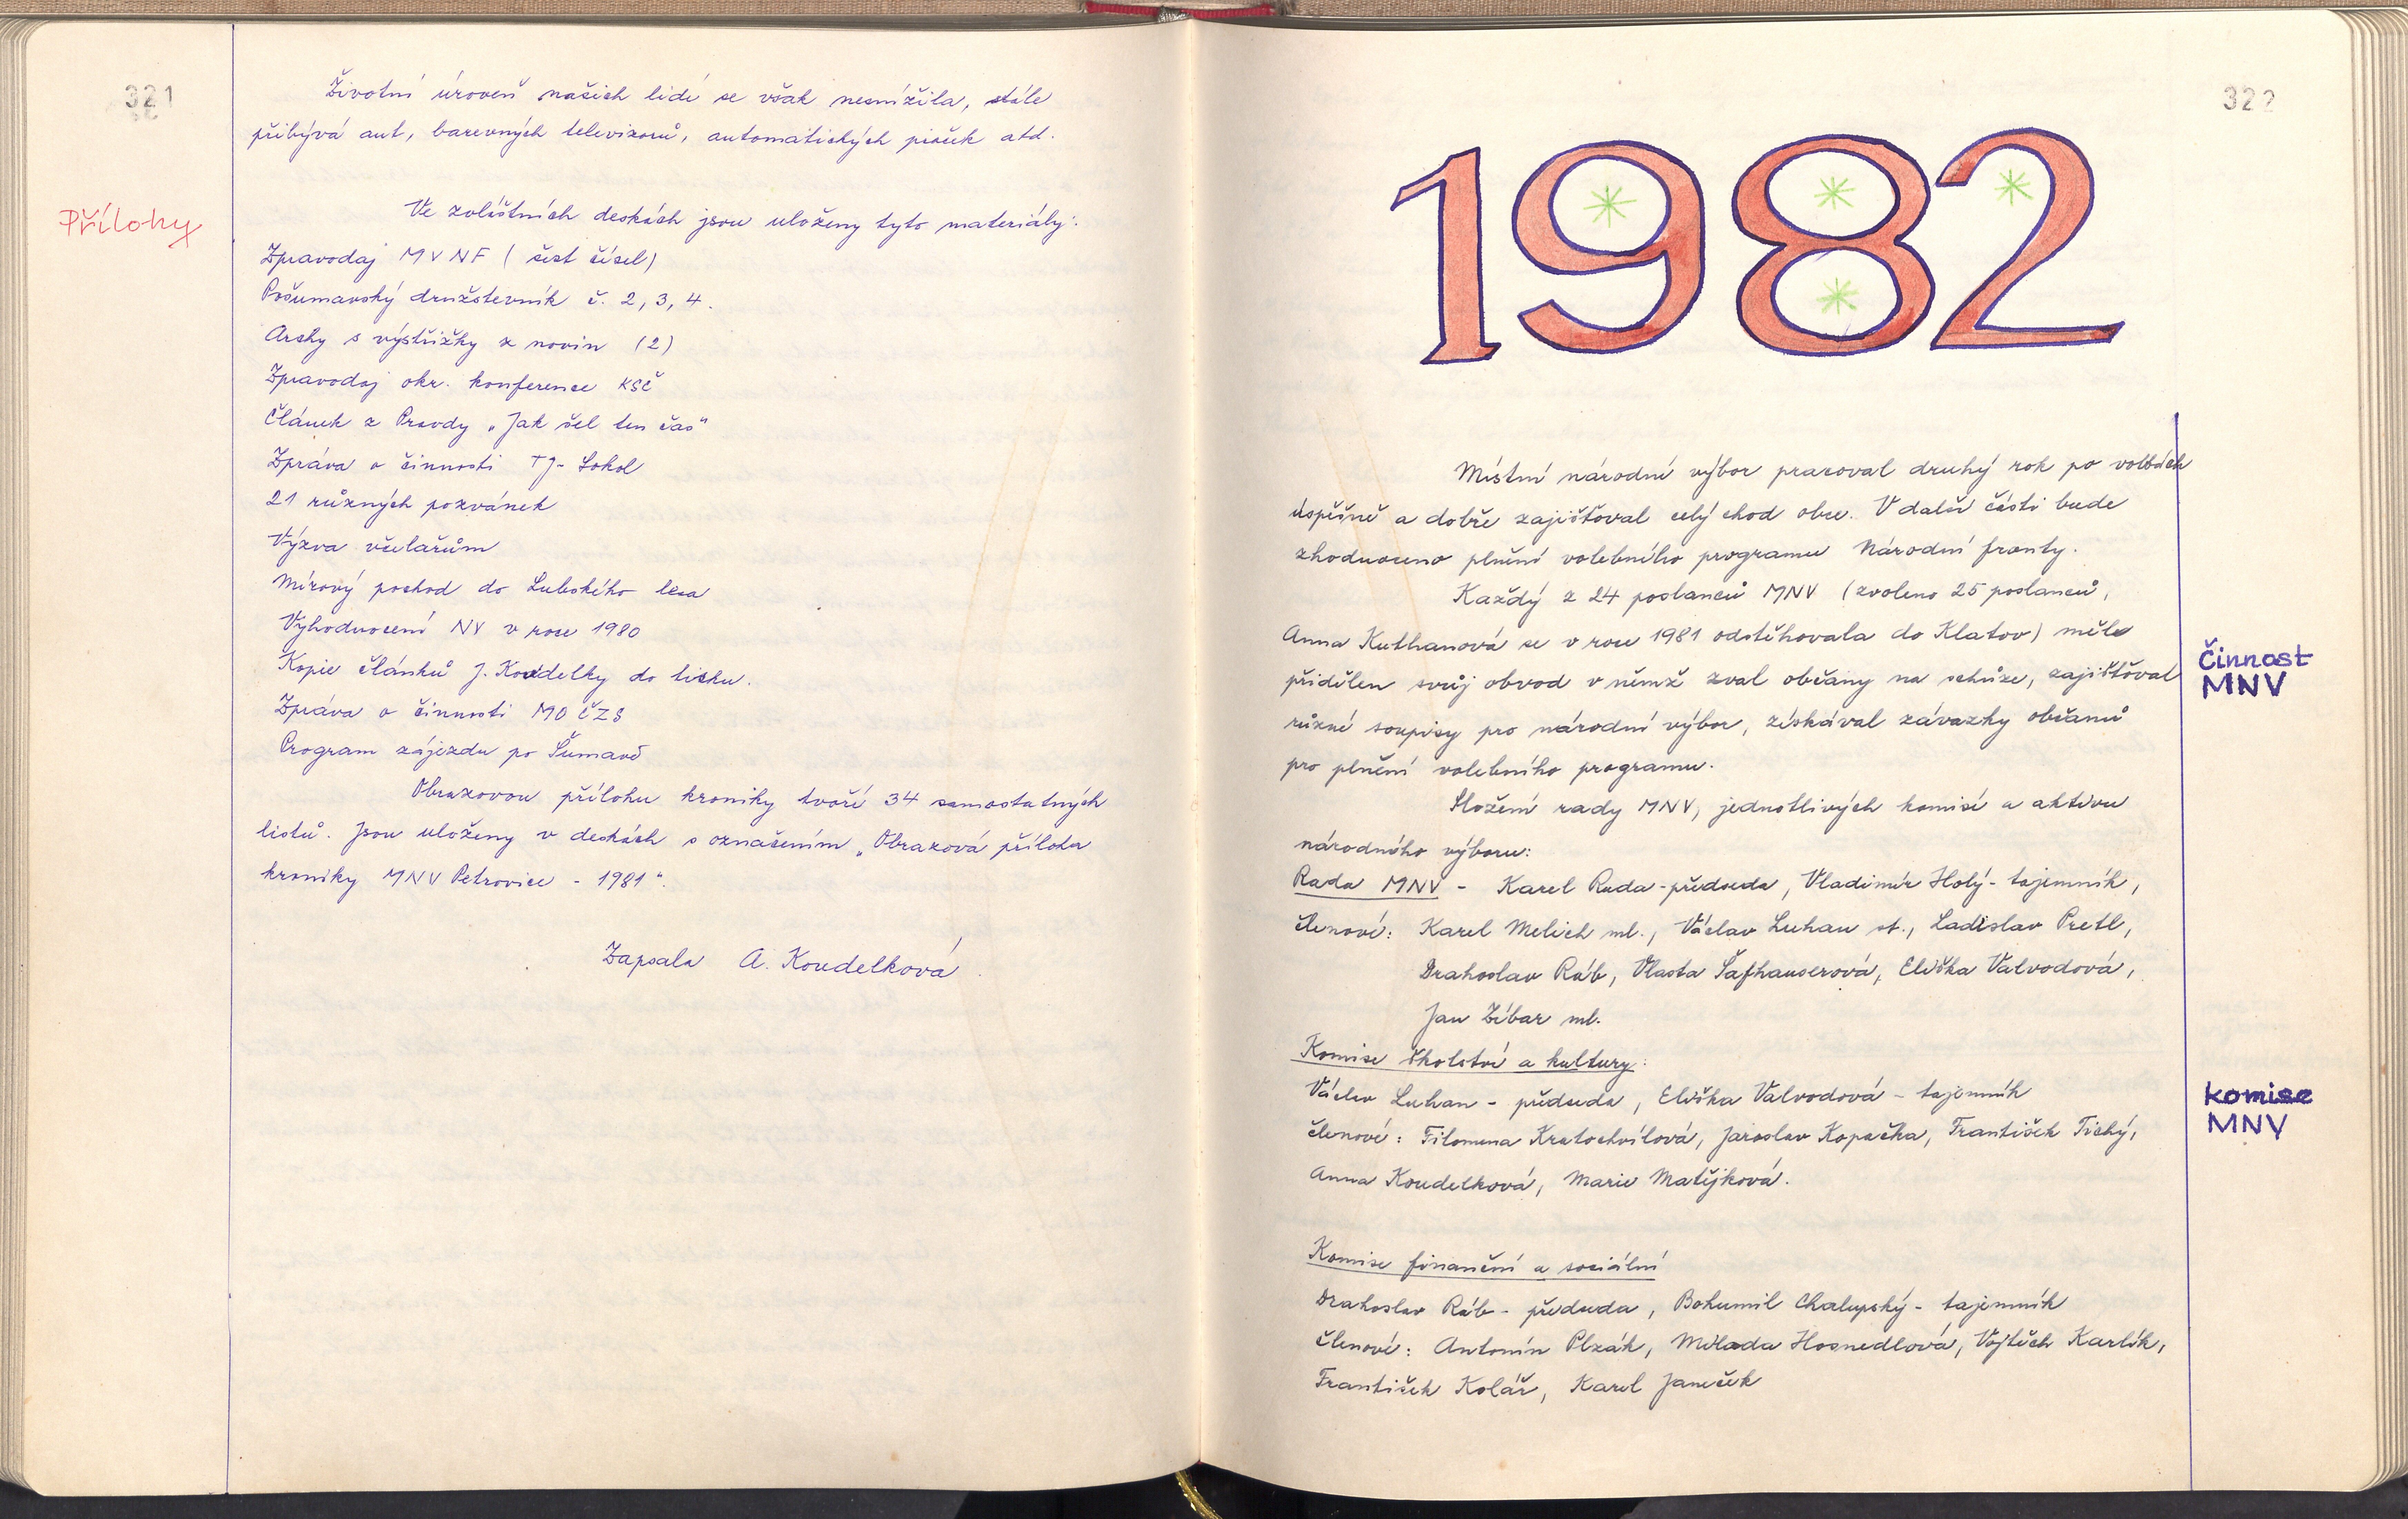 321
Životní úroveň našich lidí se však nesnížila, stále
přibývá aut, barevných televizorů, automatických praček atd.
Přílohy
Ve zvláštních deskách jsou uloženy tyto materiály:
Zpravodaj MV NF ( šest čísel)
Pošumavský družstevník č. 2, 3, 4.
Archy s výstřižky z novin (2)
Zpravodaj okr. konference KSČ
Článek z Pravdy „Jak šel ten čas"
Zpráva o činnosti TJ- Sokol
21 různých pozvánek
Výzva včelařům
Mírový pochod do Lubského lesa
Vyhodnocení NV v roce 1980
Kopie článků J. Koudelky do tisku.
Zpráva o činnosti MO ČZS
Program zájezdu po Šumavě
Obrazovou přílohu kroniky tvoří 34 samostatných
listů. Jsou uloženy v deskách s označením „Obrazová příloha
kroniky MNV Petrovice - 1981".
Zapsala A. Koudelková.
322
1982
Místní národní výbor pracoval druhý rok po volbách
úspěšně a dobře zajišťoval celý chod obce. V další části bude
zhodnoceno plnění volebního programu Národní fronty.
Každý z 24 poslanců MNV (zvoleno 25 poslanců,
Anna Kuthanová se v roce 1981 odstěhovala do Klatov) měl
přidělen svůj obvod v němž zval občany na schůze, zajišťoval
různé soupisy pro národní výbor, získával závazky občanů
pro plnění volebního programu.
Činnost
MNV
Složení rady MNV, jednotlivých komisí a aktivu
národního výboru:
Rada MNV - Karel Ruda - předseda, Vladimír Holý - tajemník,
členové: Karel Melich ml., Václav Luhan st., Ladislav Pretl,
Drahoslav Ráb, Vlasta Šafhauserová, Eliška Valvodová,
Jan Zíbar ml.
Komise školství a kultury:
Václav Luhan - předseda, Eliška Valvodová - tajemník
členové: Filomena Kratochvílová, Jaroslav Kopačka, František Tichý,
Anna Koudelková, Marie Matějková.
komise
MNV
Komise finanční a sociální
Drahoslav Ráb - předseda, Bohumil Chalupský - tajemník
členové: Antonín Plzák, Milada Hosnedlová, Vojtěch Karlík,
František Kolář, Karel Janeček